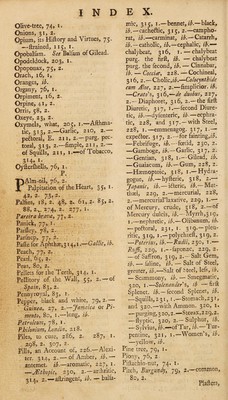 INDEX.
Olive-tree, 74, 1.
Onions, 31, 2.
Opium, its History and Virtues, 75.
—Strained, 115, 1.
Opobalsam. See Balsam of Gilead.
Opodeldock, 203, 1.
Opoponax, 75, 2.
Orach, 16, 1,
Oranges, 16,
Organy, 76, 1.
Orpiment, 16, 2.
Orpine, 21, 2.
Orris, 98, 2.
Oxeye, 23, 2.
Oxymels, what, 205, 1.—Asthma-
tic, 313, 2.—Garlic, 210, 2.—
pectoral, ib. 211, 2.—purg. pec-
toral, 313, 2.—simple, 211, 2.—
of Squills, 211, 1.—of Tobacco,
314, 1.
Oystershells, 76, 1.
P
Palm-oil, 76, 2.
Palpitation of the Heart, 35, 1.
42, 2. 72, 1.
Palsies, 18, 2. 48, 2. 61, 2. 85, 2.
88, 2. 274, 2. 277, 1.
Pareira brava, 77, 2.
Parsnick, 77, 1.
Parsley, 78, 2.
Parsnep, 77, 2.
Paste for Aphthæ, 314, 1.—Gallic, ib.
Peach, 77, 2.
Pearl, 63, 2.
Peas, 80, 2.
Pellets for the Teeth, 314, 1.
Pellitory of the Wall, 55, 2.—of
Spain, 83, 2.
Pennyroyal, 83, 1.
Pepper, black and white, 79, 2.—
Guinea, 27, 2.—Jamaica or Pi-
mento, 80, 1.—long, ib.
Petroleum, 78, 1.
Philonium, London, 218.
Piles, to cure, 26, 2. 287, 1.
298, 2. 307, 2.
Pills, an Account of, 226.—Alexi-
ter. 314, 2.—of Amber, ib.—
antemet. ib.—aromatic, 227, 1.
—Æthiopic, 230, 2.—arthritic,
314, 2.—astringent, ib.—balsa-
mic, 315, 1.—bennet, ib.—black,
ib.—cachectic, 315, 2.—campho-
rat, ib.—carminat. ib.—Catarrh,
ib.—catholic, ib.—cephalic, ib.—
chalybeat, 316, 1.—chalybeat
purg. the first, ib.—chalybeat
purg. the second, ib.—Cinnabar,
ib.—Coccia, 228.—Cochineal,
316, 2.—Cholic, ib.—Colocynthid cum
Aloe, 227, 2.—simplicior. ib.
—Crato's, 316,—de duobus, 227,
2.—Diaphoret, 316, 2.—the first
Diuretic, 317, 1.—second Diure-
tic, ib.—dysenteric, ib.—ecphra-
ctic, 228, and 317.—with Steel,
228, 1.—emmenagog. 317, 1.—
expector. 317, 2.—for fainting, ib.
—Febrifuge, ib.—fœtid, 230, 2.
—Gamboge, ib.—Garlic, 317, 2.
—Gentian, 318, 1.—Gilead, ib.
—Guaiacum, ib.—Gum, 228, 2.
—Hæmoptoic, 318, 1.—Hydra-
gogue, ib.—hysteric, 318, 2.—
Japonic, ib.—icteric, ib.—Mat-
tioli, 229, 2.—mercurial, 228,
2.—mercurial laxative, 229, 1.—
of Mercury, crude, 318, 2—of
Mercury dulcis, ib.—Myrrh, 319,
1.—nephretic, ib.—Olibanum, ib.
—pectoral, 231, 1. 319.—pleu-
ritic, 319, 1.—polychrest, 319, 2.
—Poterius, ib.—Rudii, 230, 1.—
Ruff. 229, 1.—saponac. 229, 2.
—of Saffron, 319, 2.—Salt Gem,
ib.—saline, ib.—Salt of Steel,
greater, ib.—Salt of Steel, less, ib.
—Scammony, ib.—Senegawife,
320, 1.—Solenander's, ib.—first
Splenet. ib.—second Splenet, ib.
—Squills, 231, 1.—Stomach, 231,
and 320.—with Antimon. 320, 1.
—purging, 320, 2.—Storax, 229, 2.
—styptic, 320, 2.—Sulphur, ib.
—Sylvius, ib.—of Tar, ib.—Tur-
pentine, 321, 1.—Women's, ib.
—yellow, ib.
Pine tree, 79, 1.
Piony, 76, 2.
Pistachio-nut, 74, 1.
Pitch, Burgundy, 79, 2.—common,
80, 2.
Plaisters,